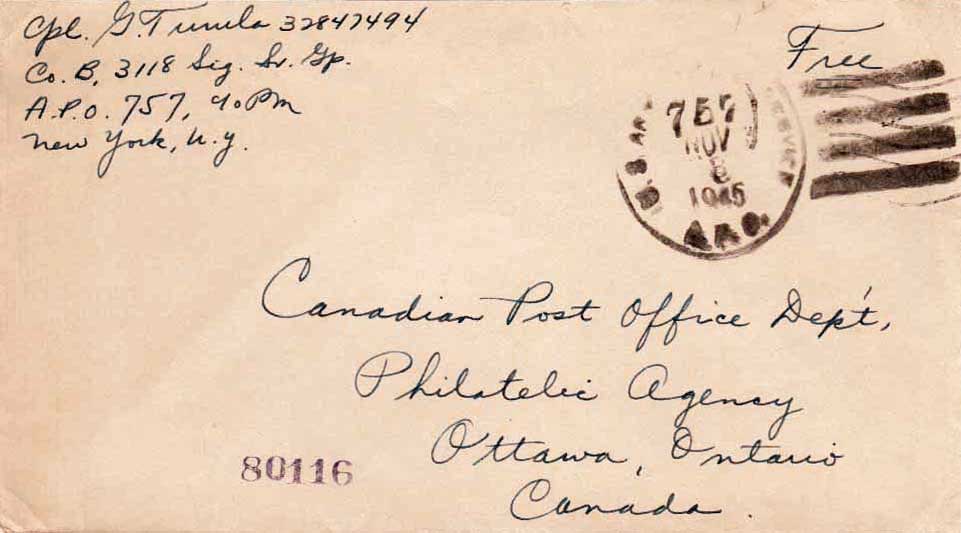 Cpl. G. Turula 32847494
Co. B, 3118 Sig. Sv. Gp.
A.P.O. 757, c/o PM
New York, N.Y.
Free
757
NOV
8
1945
U.S. AR
A.P.O.
Canadian Post Office Dep't,
Philatelic Agency
Ottawa, Ontario
Canada.
80116